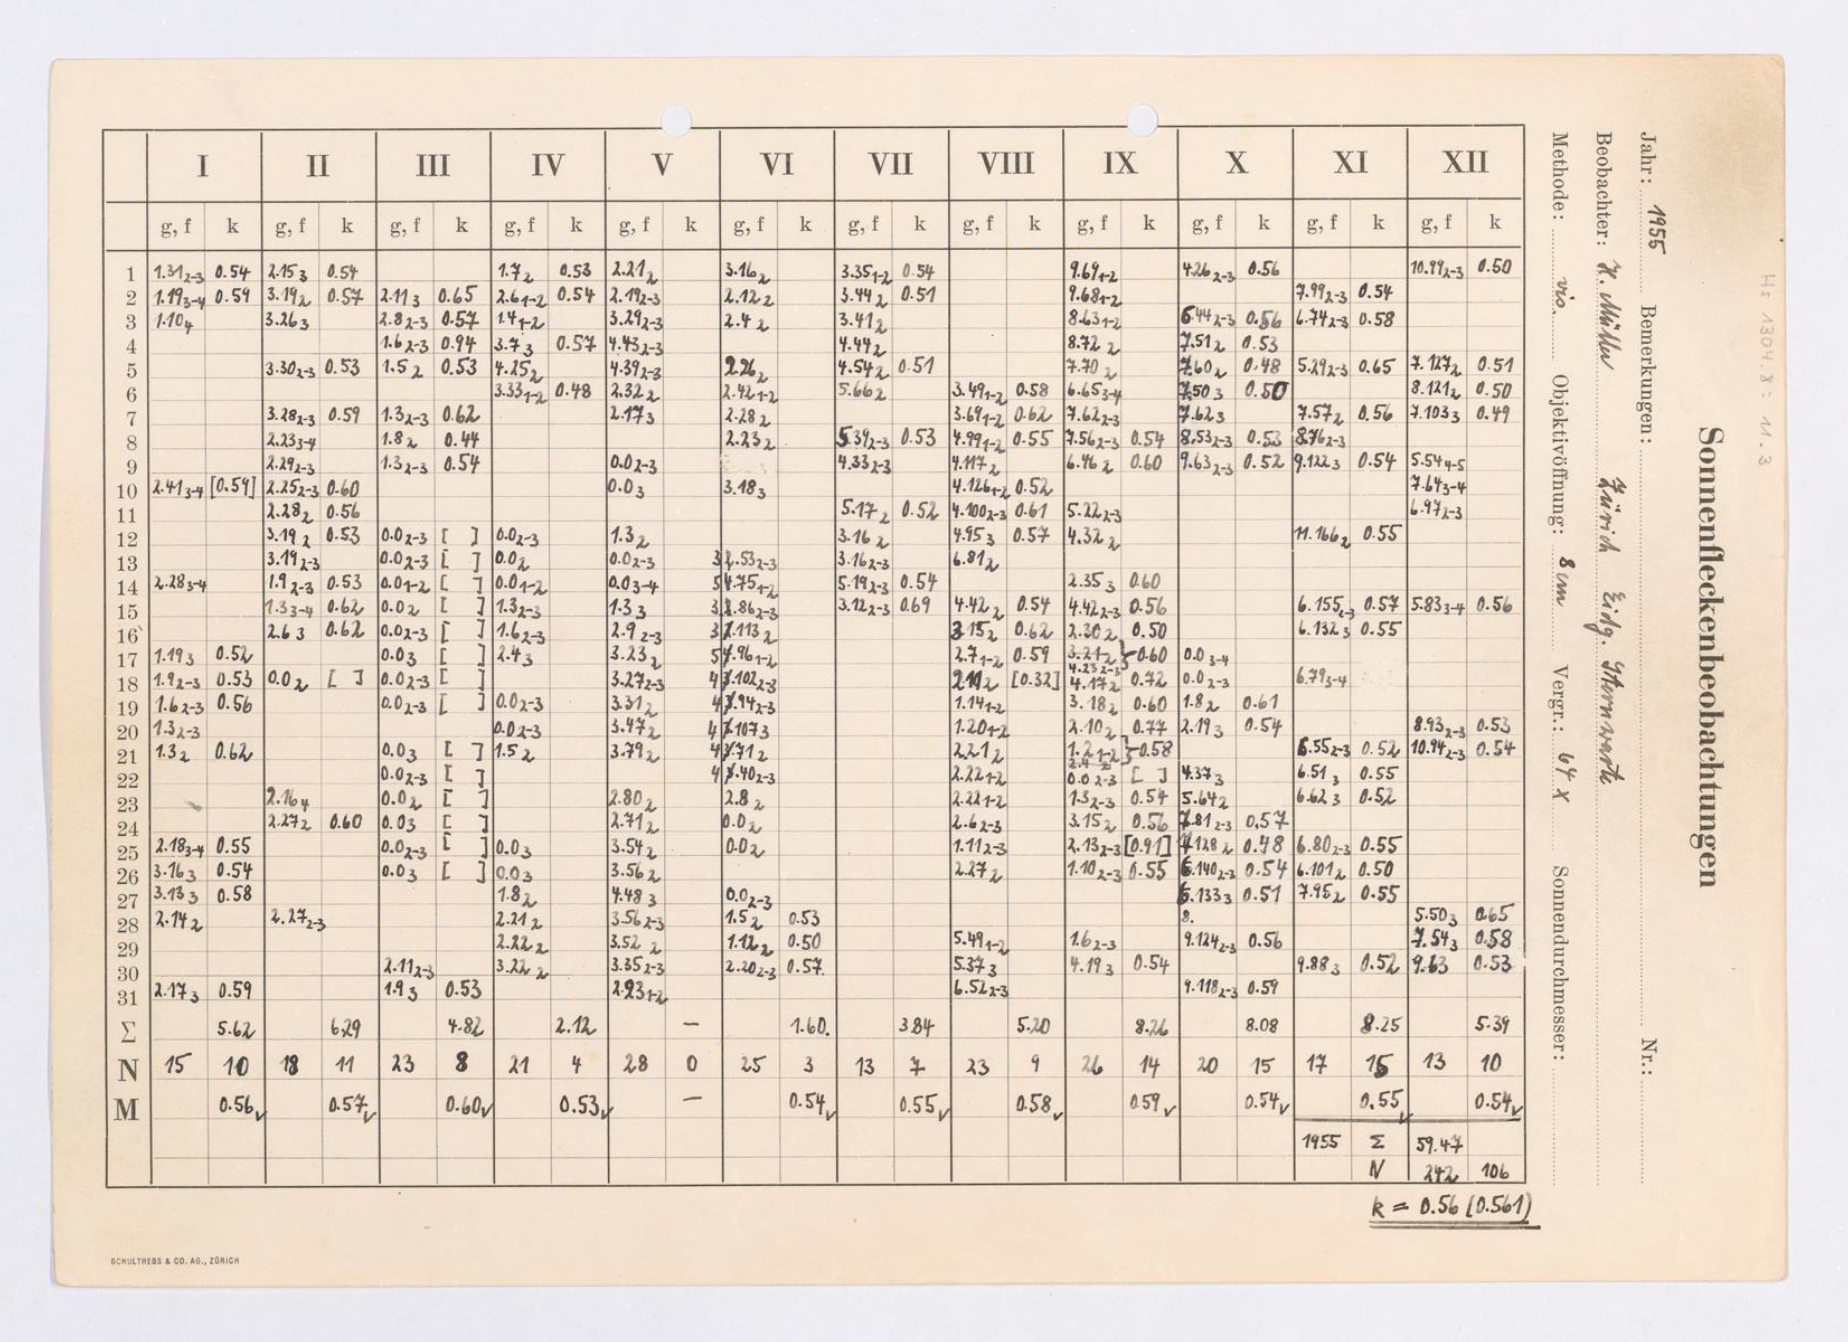 I II III IV V VI VII VIII IX X XI XII
g, f k g, f k g, f k g, f k g, f k g, f k g, f k g, f k g, f k g, f k g, f k g, f k
1 1.31 2-3 0.54 2.15 3 0.54 1.7 2 0.53 2.21 2 3.16 2 3.35 1-2 0.54 9.69 1-2 4.26 2-3 0.56 10.99 2-3 0.50
2 1.19 3-4 0.59 3.19 2 0.57 2.11 3 0.65 2.6 1-2 0.54 2.19 2-3 2.12 2 3.44 2 0.51 9.68 1-2 7.99 2-3 0.54
3 1.10 4 3.26 3 2.8 2-3 0.57 1.4 1-2 3.29 2-3 2.4 2 3.41 2 8.63 1-2 6.44 2-3 0.56 6.74 2-3 0.58
4 1.6 2-3 0.94 3.7 3 0.57 4.43 2-3 4.44 2 8.72 2 7.51 2 0.53
5 3.30 2-3 0.53 1.5 2 0.53 4.25 2 4.39 2-3 2.26 2 4.54 2 0.51 7.70 2 7.60 2 0.48 5.29 2-3 0.65 7.127 2 0.51
6 3.33 1-2 0.48 2.32 2 2.42 1-2 5.66 2 3.49 1-2 0.58 6.65 3-4 7.50 3 0.50 8.121 2 0.50
7 3.28 2-3 0.59 1.3 2-3 0.62 2.17 3 2.28 2 3.69 1-2 0.62 7.62 2-3 7.62 3 7.57 2 0.56 7.103 3 0.49
8 2.23 3-4 1.8 2 0.44 2.23 2 5.39 2-3 0.53 4.99 1-2 0.55 7.56 2-3 0.54 8.53 2-3 0.53 8.76 2-3
9 2.29 2-3 1.3 2-3 0.54 0.0 2-3 4.33 2-3 4.117 2 6.46 2 0.60 9.63 2-3 0.52 9.122 3 0.54 5.54 4-5
10 2.41 3-4 [0.59] 2.25 2-3 0.60 0.0 3 3.18 3 4.126 1-2 0.52 7.64 3-4
11 2.28 2 0.56 5.17 2 0.52 4.100 2-3 0.61 5.22 2-3 6.97 2-3
12 3.19 2 0.53 0.0 2-3 [ ] 0.0 2-3 1.3 2 3.16 2 4.95 3 0.57 4.32 2 11.166 2 0.55
13 3.19 2-3 0.0 2-3 [ ] 0.0 2 0.0 2-3 3 .53 2-3 3.16 2-3 6.81 2
14 2.28 3-4 1.9 2-3 0.53 0.0 1-2 [ ] 0.0 1-2 0.0 3-4 5 .75 1-2 5.19 2-3 0.54 2.35 3 0.60
15 1.3 3-4 0.62 0.0 2 [ ] 1.3 2-3 1.3 3 3 .86 2-3 3.12 2-3 0.69 4.42 2 0.54 4.42 2-3 0.56 6.155 2-3 0.57 5.83 3-4 0.56
16 2.6 3 0.62 0.0 2-3 [ ] 1.6 2-3 2.9 2-3 3 .113 2 3.15 2 0.62 2.30 2 0.50 6.132 3 0.55
17 1.19 3 0.52 0.0 3 [ ] 2.4 3 3.23 2 5 .96 1-2 2.7 1-2 0.59 3.21 2 } 0.60 0.0 3-4
4.23 2-3
18 1.9 2-3 0.53 0.0 2 [ ] 0.0 2-3 [ ] 3.27 2-3 4 .102 2-3 2.11 2 [0.32] 4.17 2 0.72 0.0 2-3 6.79 3-4
19 1.6 2-3 0.56 0.0 2-3 [ ] 0.0 2-3 3.31 2 4 .94 2-3 1.14 1-2 3.18 2 0.60 1.8 2 0.61
20 1.3 2-3 0.0 2-3 3.47 2 4 .107 3 1.20 1-2 2.10 2 0.77 2.19 3 0.54 8.93 2-3 0.53
21 1.3 2 0.62 0.0 3 [ ] 1.5 2 3.79 2 4 .71 2 2.21 2 1.2 1-2 } 0.58 6.55 2-3 0.52 10.94 2-3 0.54
2.4 2
22 0.0 2-3 [ ] 4 .40 2-3 2.22 1-2 0.0 2-3 [ ] 4.37 3 6.51 3 0.55
23 2.16 4 0.0 2 [ ] 2.80 2 2.8 2 2.22 1-2 1.3 2-3 0.54 5.64 2 6.62 3 0.52
24 2.27 2 0.60 0.0 3 [ ] 2.71 2 0.0 2 2.6 2-3 3.15 2 0.56 7.81 2-3 0.57
25 2.18 3-4 0.55 0.0 2-3 [ ] 0.0 3 3.54 2 0.0 2 1.11 2-3 2.13 2-3 [0.91] 7.128 2 0.48 6.80 2-3 0.55
26 3.16 3 0.54 0.0 3 [ ] 0.0 3 3.56 2 2.27 2 1.10 2-3 0.55 6.140 2-3 0.54 6.101 2 0.50
27 3.13 3 0.58 1.8 2 4.48 3 0.0 2-3 6.133 3 0.51 7.95 2 0.55
28 2.14 2 2.27 2-3 2.21 2 3.56 2-3 1.5 2 0.53 8. 5.50 3 0.65
29 2.22 2 3.52 2 1.12 2 0.50 5.49 1-2 1.6 2-3 9.124 2-3 0.56 7.54 3 0.58
30 2.11 2-3 3.22 2 3.35 2-3 2.20 2-3 0.57 5.37 3 4.19 3 0.54 9.88 3 0.52 9.63 0.53
31 2.17 3 0.59 1.9 3 0.53 2.23 1-2 6.52 2-3 9.118 2-3 0.59
Σ 5.62 6.29 4.82 2.12 – 1.60. 3.84 5.20 8.26 8.08 8.25 5.39
N 15 10 18 11 23 8 21 4 28 0 25 3 13 7 23 9 26 14 20 15 17 15 13 10
M 0.56 0.57 0.60 0.53 – 0.54 0.55 0.58 0.59 0.54 0.55 0.54
1955 Σ 59.47
N 242 106
k = 0.56 (0.561)
SCHULTHESS & CO. AG., ZÜRICH
Sonnenfleckenbeobachtungen
Jahr: 1955 Bemerkungen: Nr.:
Beobachter: H. Müller Zürich Eidg. Sternwarte
Methode: vis. Objektivöffnung: 8 cm Vergr.: 64 x Sonnendurchmesser:
Hs 1304.8 : 11.3